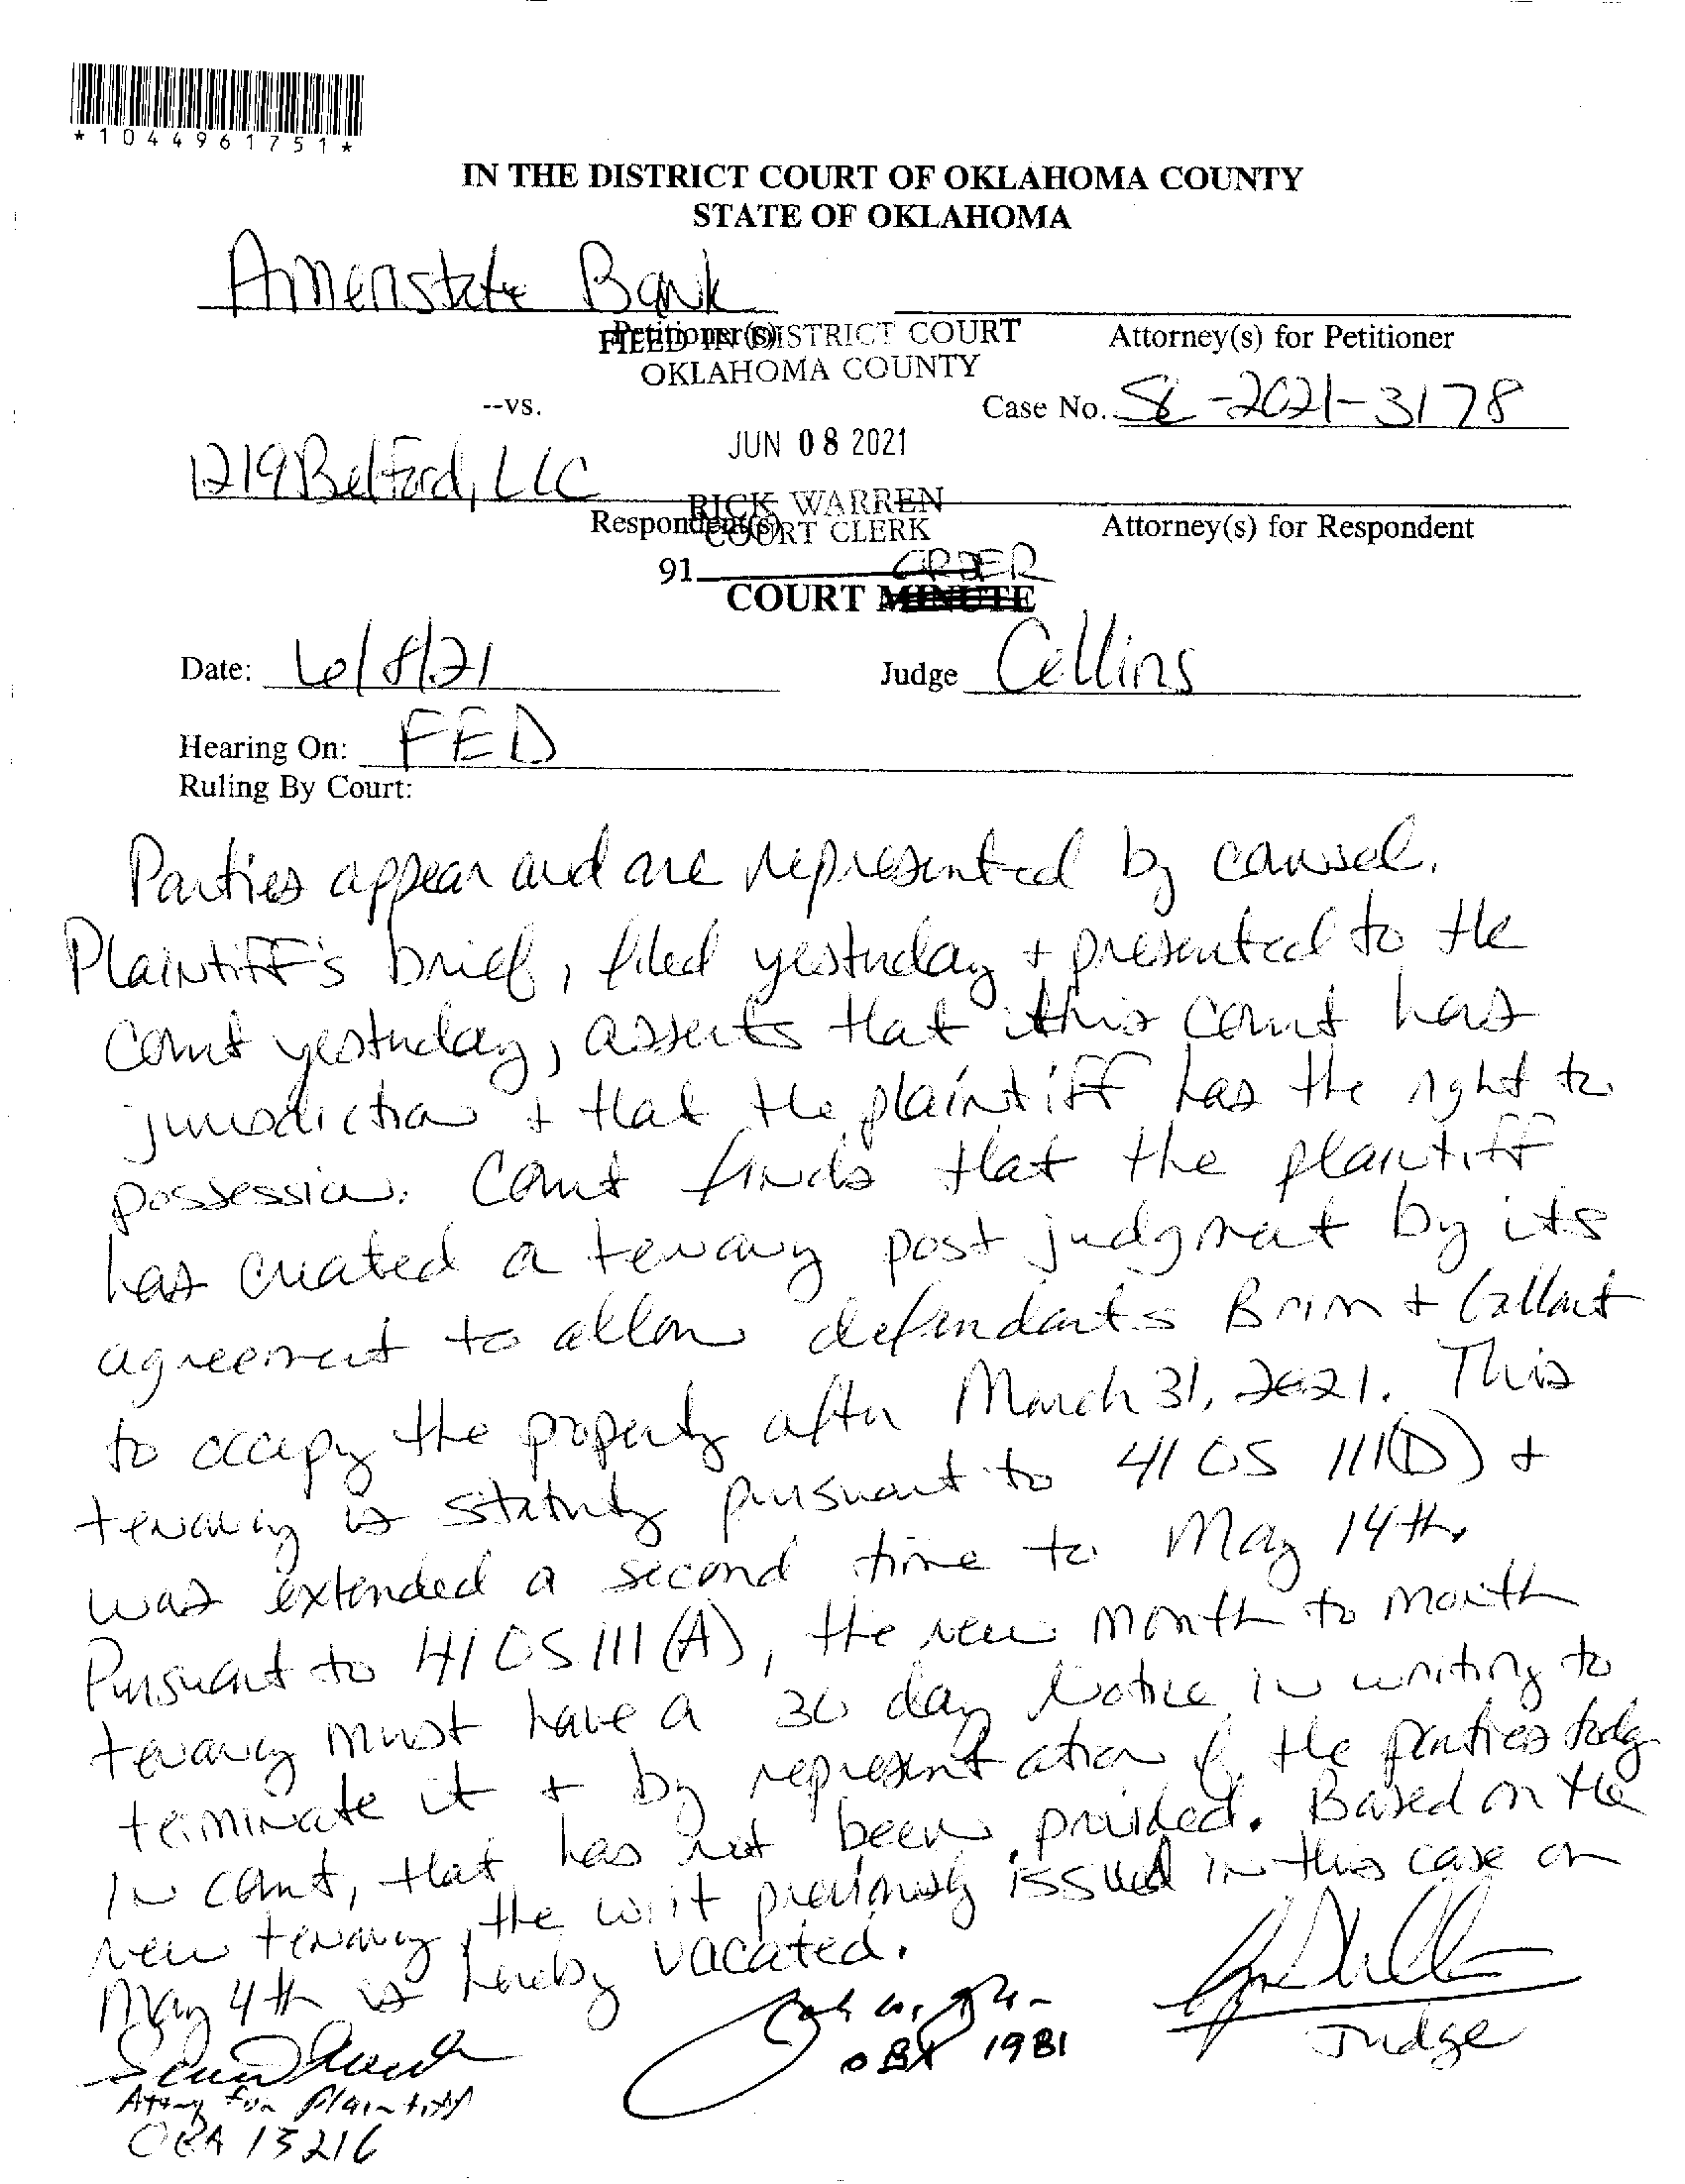 *1044961751*
IN THE DISTRICT COURT OF OKLAHOMA COUNTY
STATE OF OKLAHOMA
Ameristate Bank
Petitioner(s)
Attorney(s) for Petitioner
FILED IN DISTRICT COURT
OKLAHOMA COUNTY
--vs.
Case No. SC-2021-3178
JUN 08 2021
1219 Belford, LLC
RICK WARREN
Respondent(s)
COURT CLERK
Attorney(s) for Respondent
91
ORDER
COURT MINUTE
Date: 6/8/21
Judge Collins
Hearing On: FED
Ruling By Court:
Parties appear and are represented by counsel.
Plaintiff's brief, filed yesterday + presented to the
Court yesterday, asserts that this court has
jurisdiction + that the plaintiff has the right to
possession. Court finds that the plaintiff
has created a tenancy post judgment by its
agreement to allow defendants Brim + Gallant
to occupy the property after March 31, 2021. This
tenancy is statutory pursuant to 41 OS 111(D) +
was extended a second time to May 14th.
Pursuant to 41 OS 111(A), the new month to month
tenancy must have a 30 day Notice in writing to
terminate it + by representation of the parties today
in court, that has not been provided. Based on the
new tenancy, the writ previously issued in this case on
May 4th is hereby vacated.
OBA 1981
Judge
Attny for Plaintiff
OBA 15216